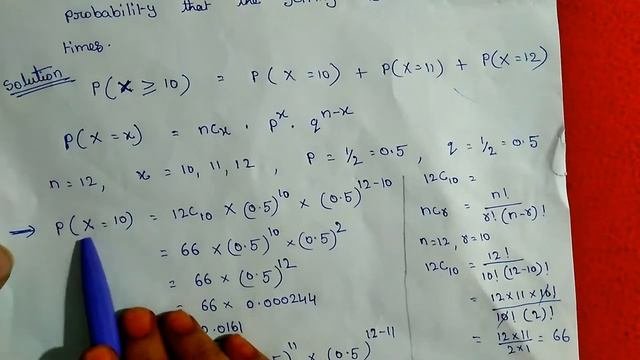 probability that the
times.
Solution
P(X ≥ 10) = P(X = 10) + P(X = 11) + P(X = 12)
P(X = x) = nCx · p^x · q^(n-x)
n = 12, x = 10, 11, 12, P = 1/2 = 0.5, q = 1/2 = 0.5
→ P(X = 10) = 12C10 × (0.5)^10 × (0.5)^(12-10)
= 66 × (0.5)^10 × (0.5)^2
= 66 × (0.5)^12
= 66 × 0.000244
0.0161
)^11 × (0.5)^(12-11)
12C10 =
nCr = n! / r! (n-r)!
n = 12, r = 10
12C10 = 12! / 10! (12-10)!
= 12 × 11 × 10! / 10! (2)!
= 12 × 11 / 2 × 1 = 66